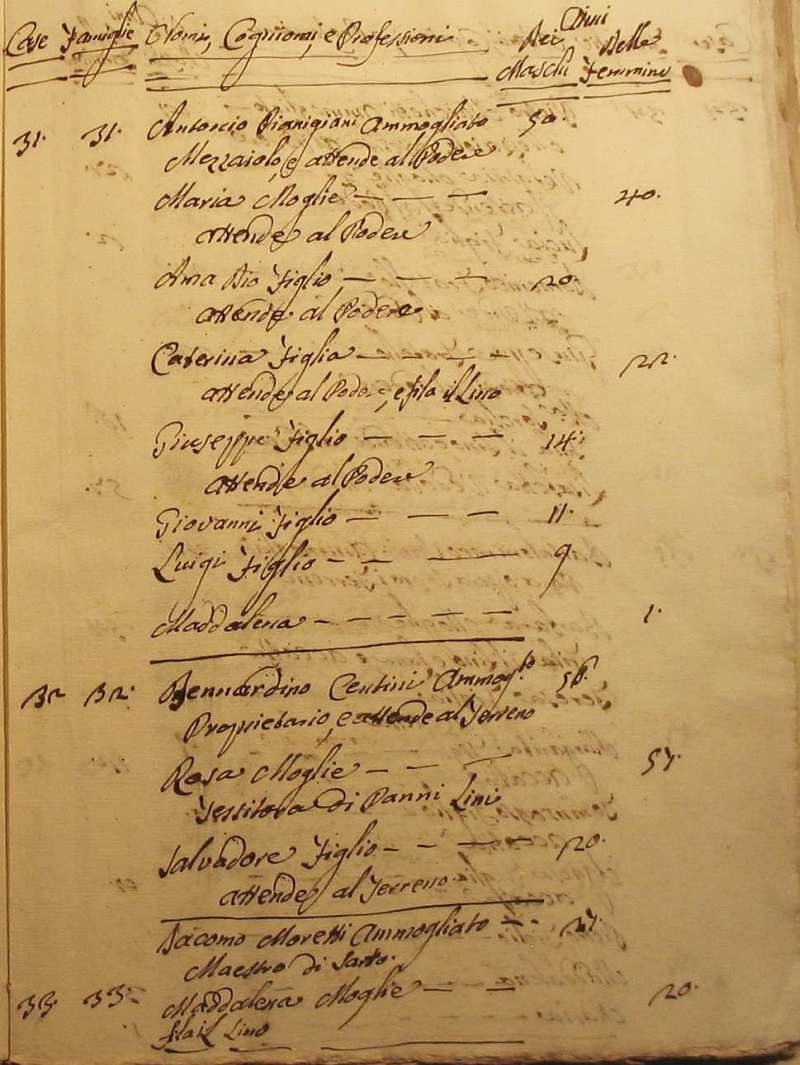 Case Famiglie Nomi, Cognomi, e Professioni Anni
Dei Maschi Delle Femmine
31. 31. Antonio Pianigiani Ammogliato 50.
Mezzaiolo, e attende al Podere
Maria Moglie — — — 40.
attende al Podere
Figlio — — — 20.
attende al Podere
Caterina Figlia — — — 22.
attende al Podere, e fila il Lino
Giuseppe Figlio — — — 14.
attende al Podere
Giovanni Figlio — — — 11.
Luigi Figlio — — — 9
Maddalena — — — — — 1.
32 32. Bernardino Centini Ammog.to 56.
Proprietario, e attende al Terreno
Rosa Moglie — — — 57.
Tessitora di Panni Lini
Salvadore Figlio — — — — 20.
attende al Terreno.
Giacomo Moretti Ammogliato — - 27.
Maestro di Sarto.
33. 33. Maddalena Moglie — — — 20.
fila il Lino